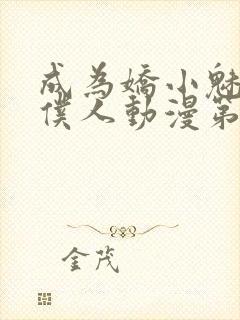 成為嬌小魅
僕人動漫第
金茂